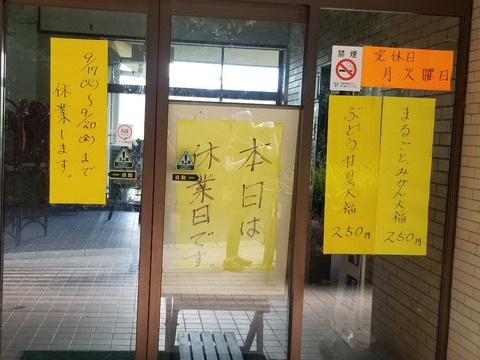 9/17(火)〜9/20(金)まで
休業します。
自動
本日は
休業日です。
自動
禁煙
定休日
月火曜日
まるごとみかん大福
250円
ぶどう甘夏大福
250円